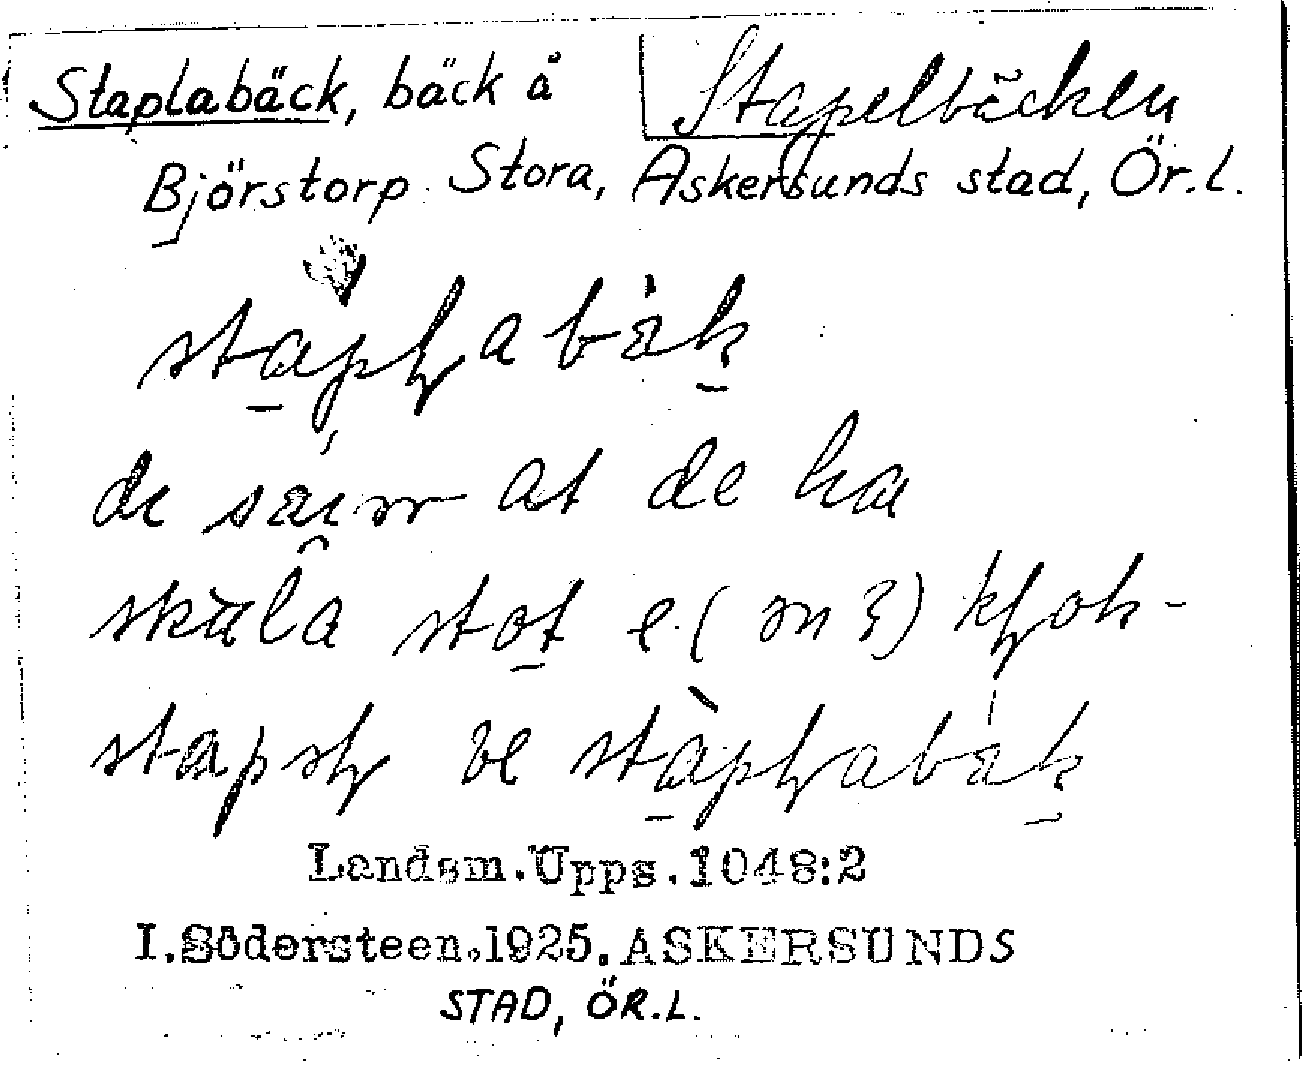 Staplabäck, bäck å Stapelbäcken
Björstorp Stora, Askersunds stad, Ör.L.
stapɫabäk
de at de ha
skula stot e (en 3) kɫok-
stapɫ ve stapɫabäk
Landsm.Upps.1048:2
I.Södersteen.1925.ASKERSUNDS
STAD, ÖR.L.